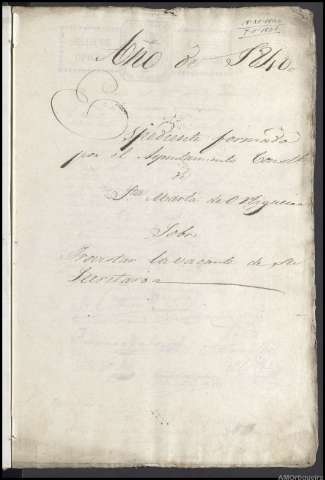 Año de 1840.
Espediente formado
por el Ayuntamiento Constl.
de
Sta. Marta de Ortigueira
Sobre
Proveher la vacante de su
Secretario